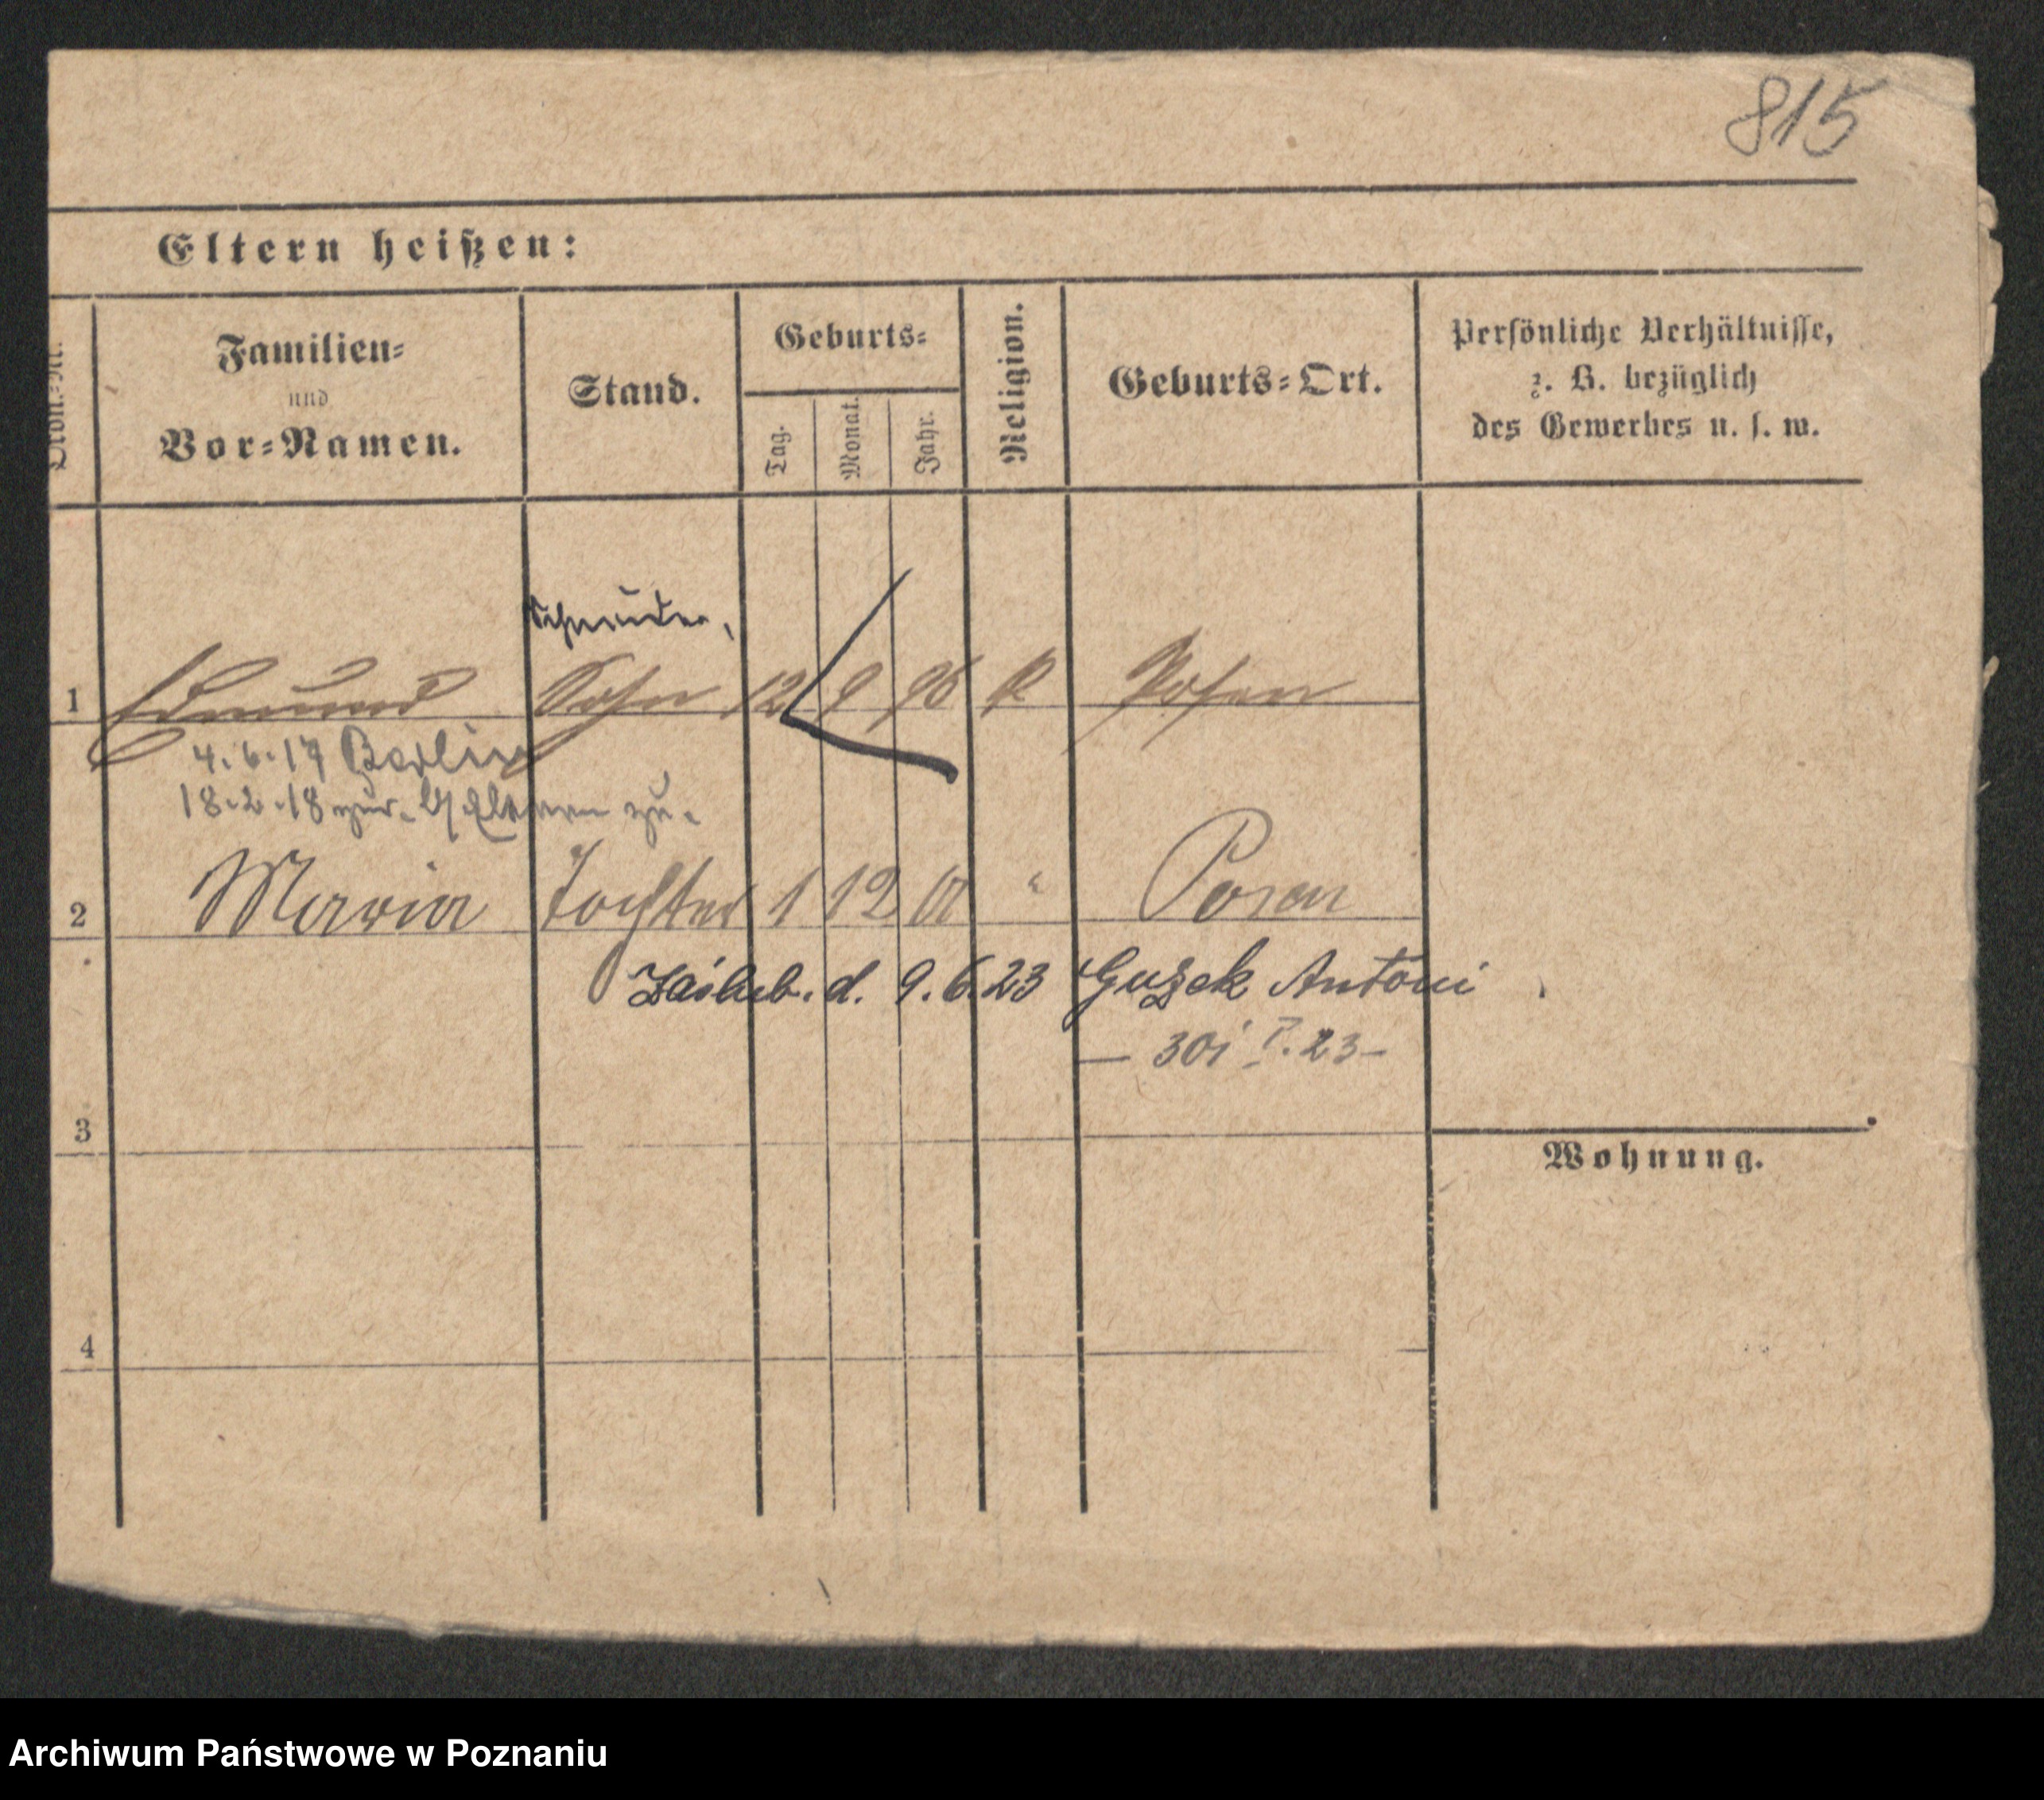 815
Eltern heißen:
Ordn.-Nr.
Familien-
und
Vor-Namen.
Stand.
Geburts-
Tag.
Monat.
Jahr.
Religion.
Geburts-Ort.
Persönliche Verhältnisse,
z. B. bezüglich
des Gewerbes u. s. w.
Schneider,
1 Edmund Sohn 12 9 96 K Posen
4.6.17 Berlin
18.2.18 zur. Eltern zu.
2 Maria Tochter 1 12 01 " Posen
Zaślub. d. 9.6.23 Guzek Antoni
3
Wohnung.
4
Archiwum Państwowe w Poznaniu